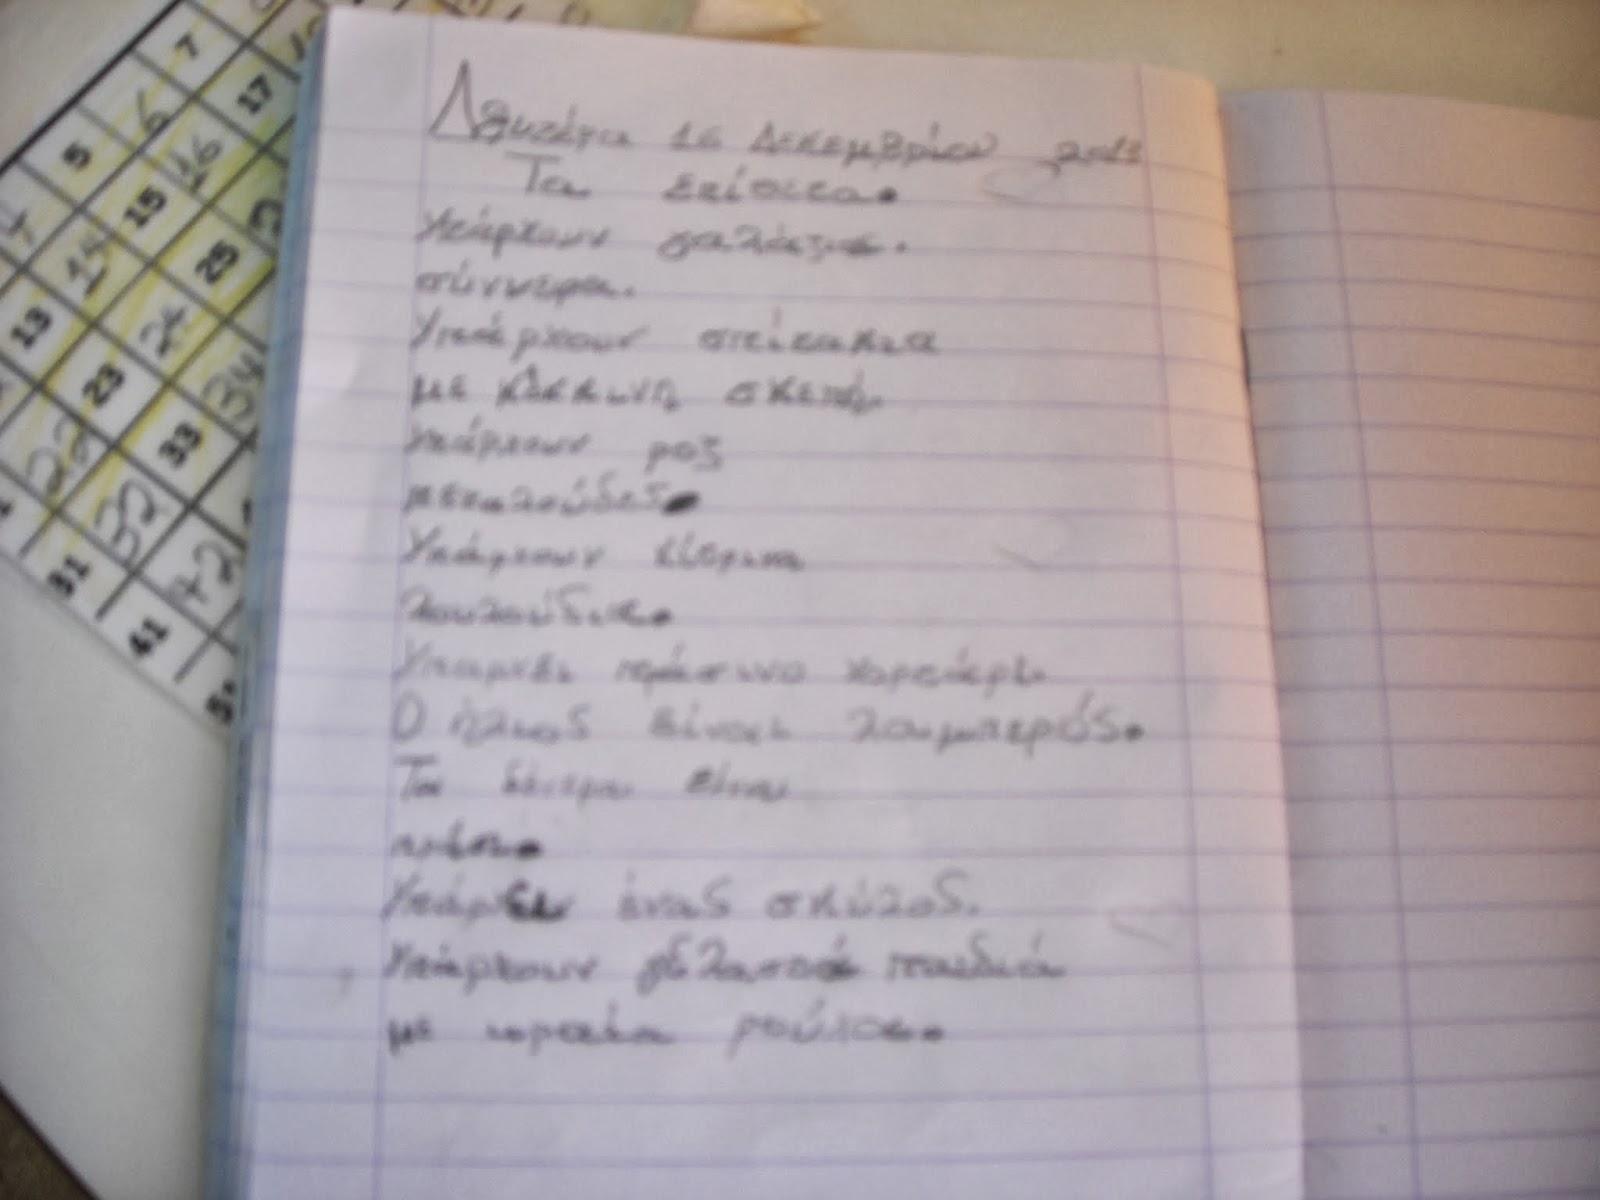 Δευτέρα 16 Δεκεμβρίου 2013
Τα σπίτια.
Υπάρχουν γαλάζια.
σύννεφα.
Υπάρχουν σπιτάκια
με κόκκινη σκεπή.
Υπάρχουν ροζ
πεταλούδες.
Υπάρχουν κίτρινα
λουλούδια.
Υπάρχει πράσινο χορτάρι.
Ο ήλιος είναι λαμπερός.
Τα δέντρα είναι
Υπάρχει ένας σκύλος.
Υπάρχουν γελαστά παιδιά
με ωραία ρούχα.
7
17
6
16
5
15
25
14
24
34
13
23
33
22
32
42
31
41